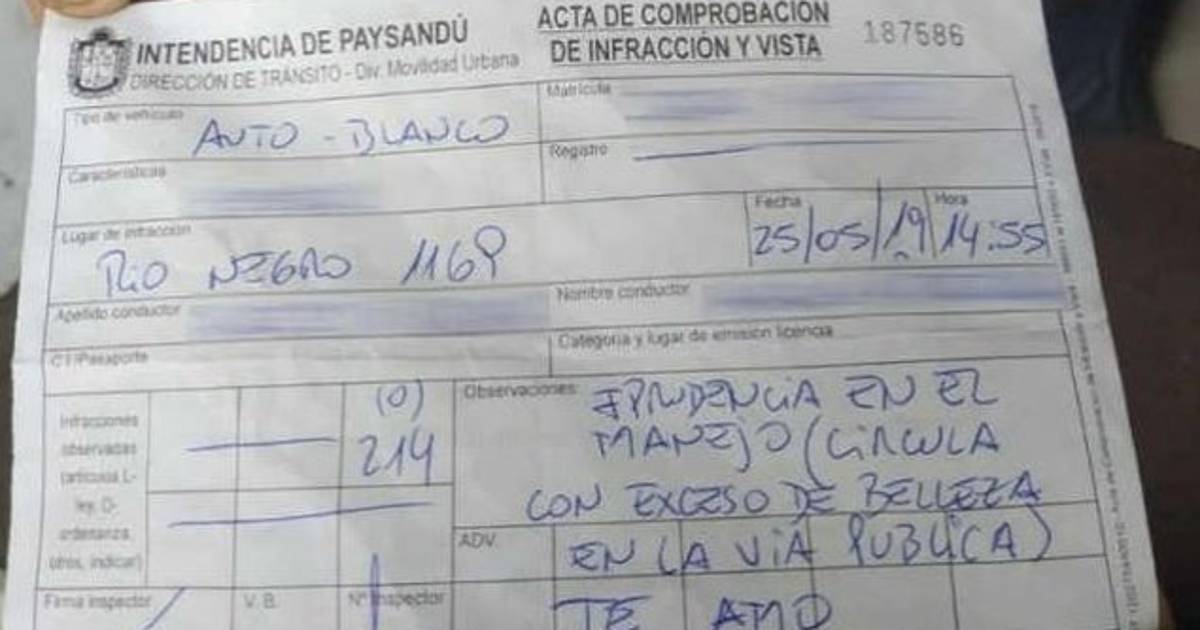 INTENDENCIA DE PAYSANDÚ
DIRECCIÓN DE TRÁNSITO - Div. Movilidad Urbana
ACTA DE COMPROBACIÓN
DE INFRACCIÓN Y VISTA
187586
Tipo de vehículo
AUTO - BLANCO
Matrícula
Características
Registro
Lugar de infracción
RIO NEGRO 1169
Fecha
25/05/19
Hora
14:55
Apellido conductor
Nombre conductor
C.I/Pasaporte
Categoría y lugar de emisión licencia
Infracciones
observadas
(artículo L-
ley, O-
ordenanza,
otros, indicar)
(0)
214
Observaciones:
IPRUDENCIA EN EL
MANEJO (CIRCULA
CON EXCESO DE BELLEZA
ADV.
EN LA VIA PUBLICA)
TE AMO
Firma inspector
V. B.
N° inspector